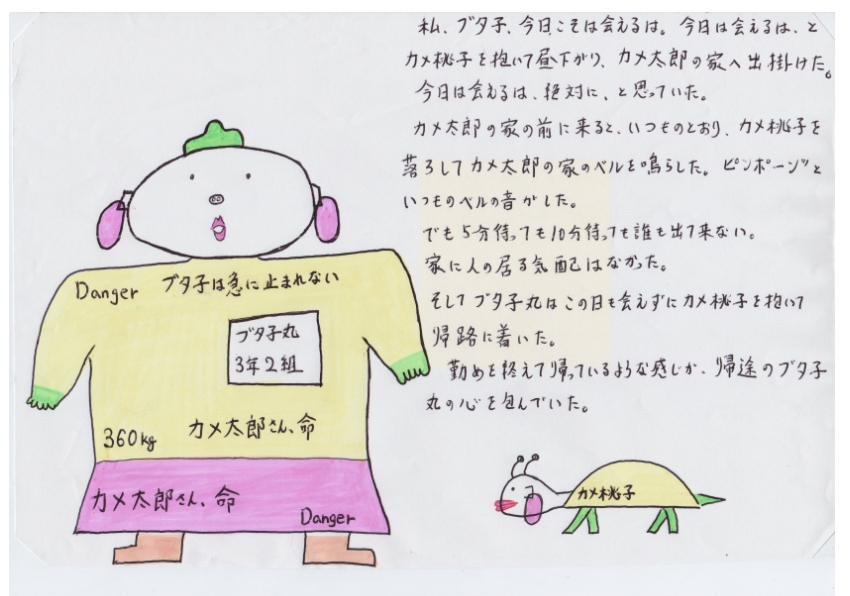 私、ブタ子、今日こそは会えるは。今日は会えるは、と
カメ桃子を抱いて昼下がり、カメ太郎の家へ出掛けた。
今日は会えるは、絶対に、と思っていた。
カメ太郎の家の前に来ると、いつものとおり、カメ桃子を
落ろしてカメ太郎の家のベルを鳴らした。ピンポーンッと
いつものベルの音がした。
でも5分待っても10分待っても誰も出て来ない。
家に人の居る気配はなかった。
そしてブタ子丸はこの日も会えずにカメ桃子を抱いて
帰路に着いた。
勤めを終えて帰っているような感じが、帰途のブタ子
丸の心を包んでいた。
Danger ブタ子は急に止まれない
ブタ子丸
3年2組
360kg カメ太郎さん、命
カメ太郎さん、命
Danger
カメ桃子